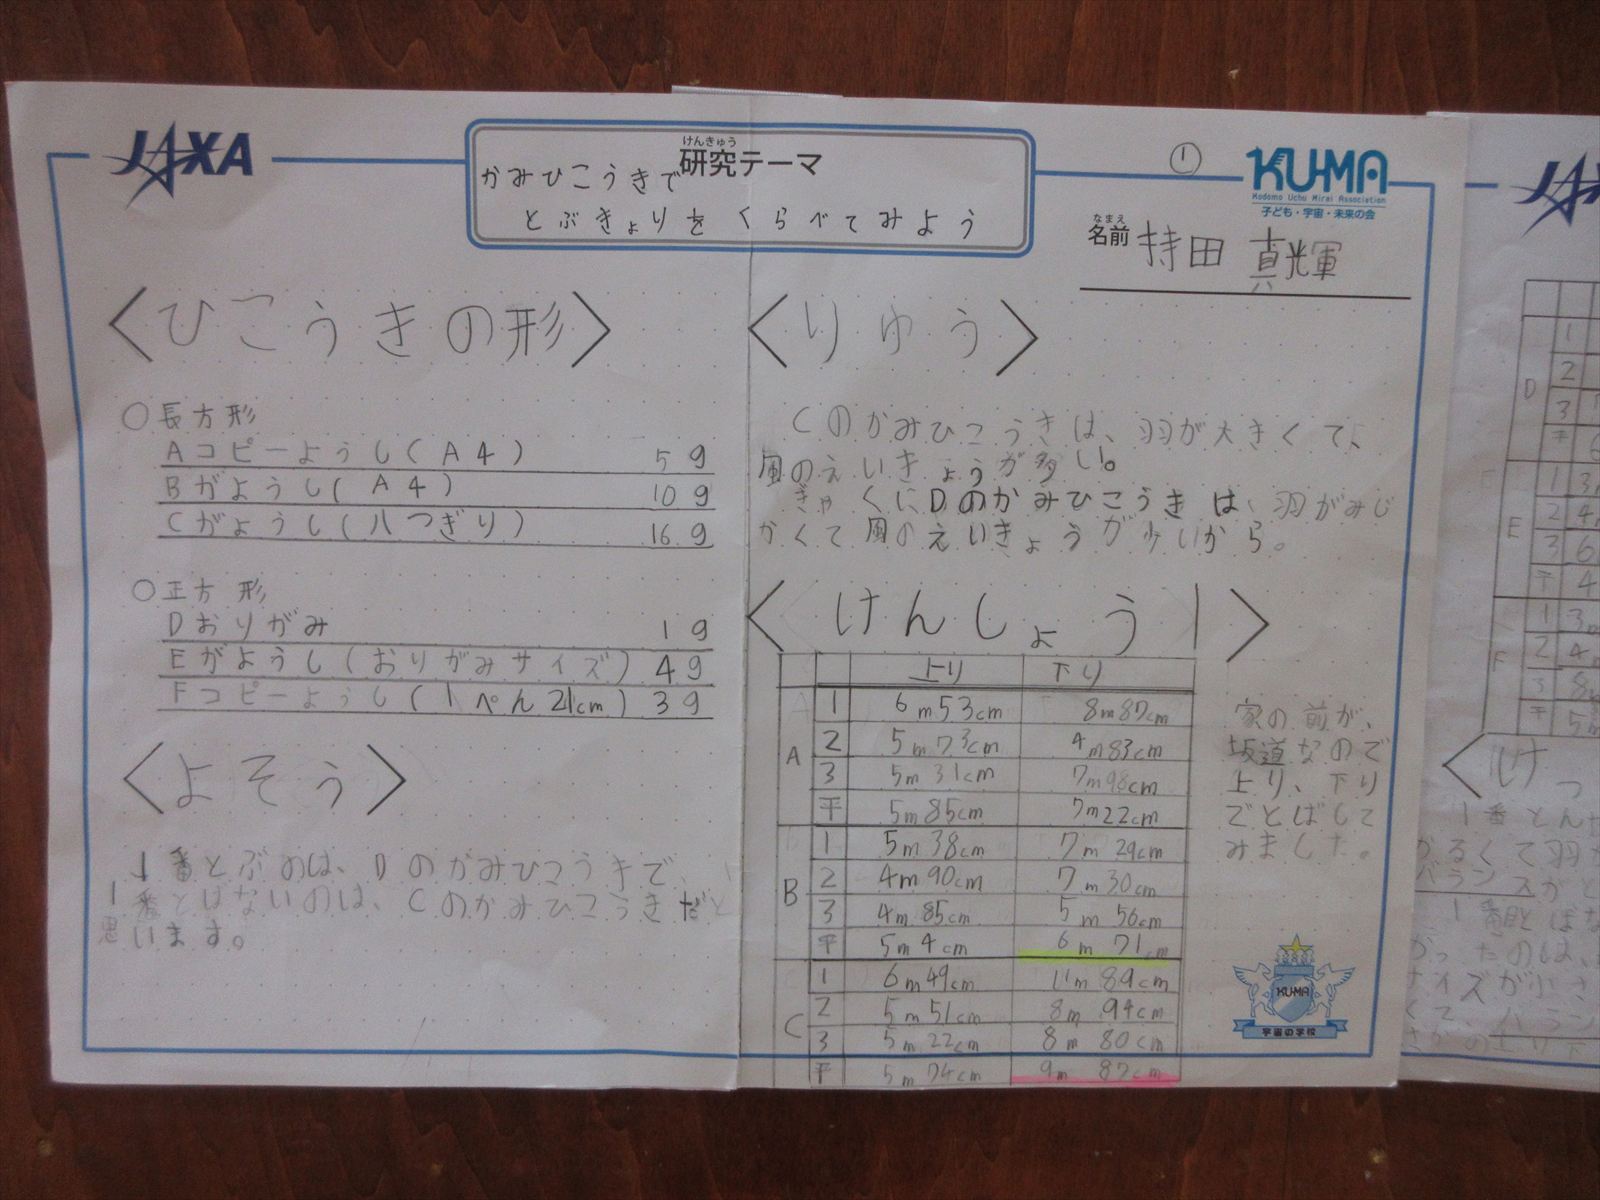 JAXA
けんきゅう
研究テーマ
かみひこうきで
とぶきょりをくらべてみよう
1
KUMA
Kodomo Uchu Mirai Association
子ども・宇宙・未来の会
なまえ
名前 持田 真輝
<ひこうきの形>
○長方形
Aコピーようし(A4) 5g
Bがようし(A4) 10g
Cがようし(八つぎり) 16g
○正方形
Dおりがみ 1g
Eがようし(おりがみサイズ) 4g
Fコピーようし(1ぺん21cm) 3g
<よそう>
1番とぶのは、Dのかみひこうきで、
1番とばないのは、Cのかみひこうきだと
思います。
<りゆう>
Cのかみひこうきは、羽が大きくて、
風のえいきょうが多い。
ぎゃくにDのかみひこうきは、羽がみじ
かくて風のえいきょうが少いから。
<けんしょう1>
上り 下り
A
1 6m53cm 8m87cm
2 5m73cm 4m83cm
3 5m31cm 7m98cm
平 5m85cm 7m22cm
B
1 5m38cm 7m29cm
2 4m90cm 7m30cm
3 4m85cm 5m56cm
平 5m4cm 6m71cm
C
1 6m49cm 11m89cm
2 5m51cm 8m94cm
3 5m22cm 8m80cm
平 5m74cm 9m87cm
家の前が、
坂道なので
上り、下り
でとばして
みました。
KUMA
宇宙の学校
D
1
2
3
平
E
1 3
2 4
3 6
平 4
F
1 3
2 4
3 8
平 5
<けっ
1番とん
かるくて羽
バランスがと
1番とばな
かったのは、
サイズが小さ
くて、バラン